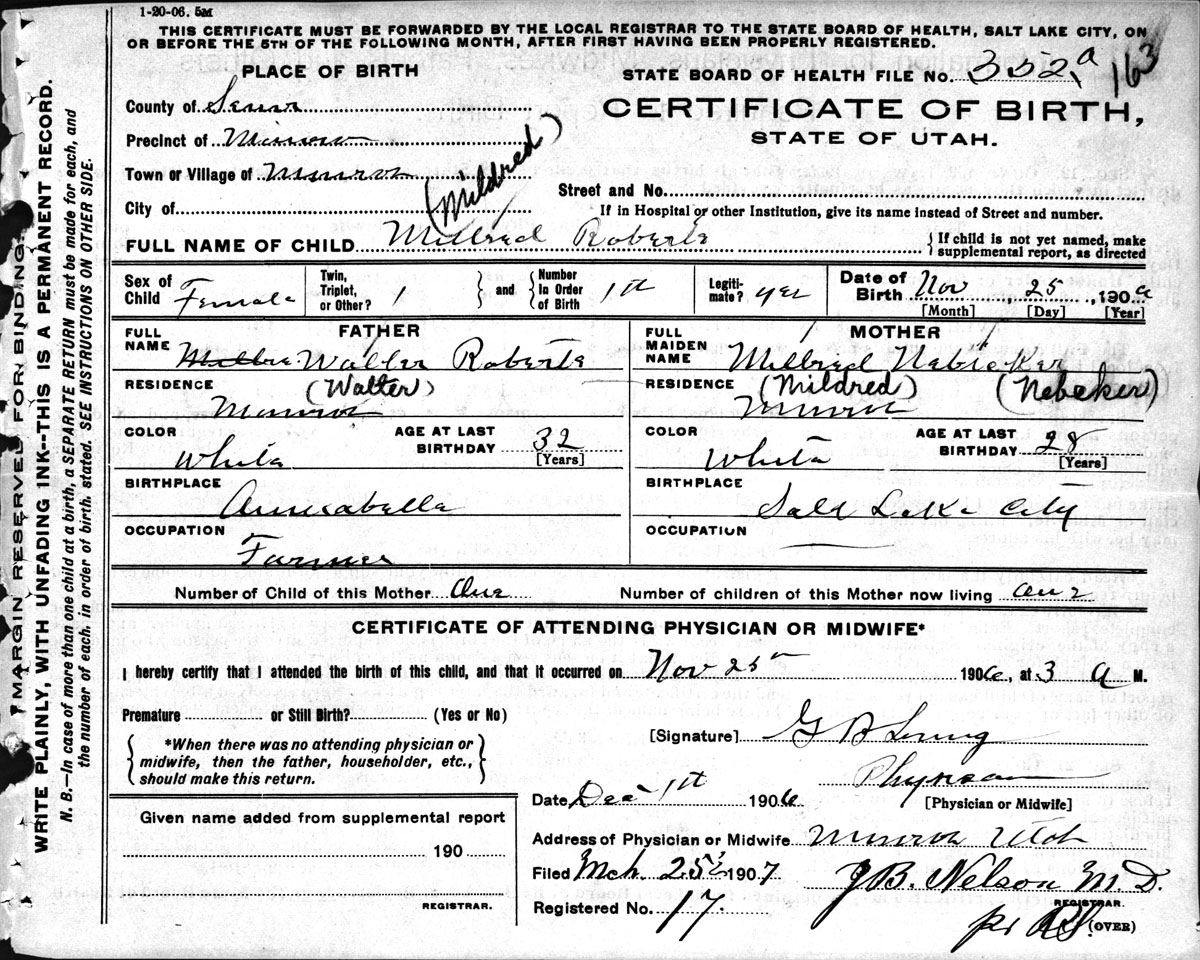 1-20-06. 5M
THIS CERTIFICATE MUST BE FORWARDED BY THE LOCAL REGISTRAR TO THE STATE BOARD OF HEALTH, SALT LAKE CITY, ON
OR BEFORE THE 5TH OF THE FOLLOWING MONTH, AFTER FIRST HAVING BEEN PROPERLY REGISTERED.
PLACE OF BIRTH
STATE BOARD OF HEALTH FILE No. 352a 163
County of
CERTIFICATE OF BIRTH,
STATE OF UTAH.
Precinct of
Town or Village of
(Mildred)
Street and No.
City of
If in Hospital or other Institution, give its name instead of Street and number.
FULL NAME OF CHILD Roberts
{If child is not yet named, make
supplemental report, as directed
Sex of Child Female
Twin, Triplet, or Other? 1
{and}
Number In Order of Birth 1th
Legitimate? yes
Date of Birth Nov 25, 190
[Month] [Day] [Year]
FATHER
MOTHER
FULL NAME Roberts
FULL MAIDEN NAME
(Walter)
(Mildred) (Nebeker)
RESIDENCE
RESIDENCE
COLOR White
AGE AT LAST BIRTHDAY 32 [Years]
COLOR White
AGE AT LAST BIRTHDAY 28 [Years]
BIRTHPLACE Annabella
BIRTHPLACE Salt Lake City
OCCUPATION Farmer
OCCUPATION
Number of Child of this Mother One
Number of children of this Mother now living
CERTIFICATE OF ATTENDING PHYSICIAN OR MIDWIFE*
I hereby certify that I attended the birth of this child, and that it occurred on Nov 25th 1906, at 3 A M.
Premature or Still Birth? (Yes or No)
[Signature]
{*When there was no attending physician or
midwife, then the father, householder, etc.,
should make this return.}
[Physician or Midwife]
Date Dec 1th 1906
Given name added from supplemental report
190
REGISTRAR.
Address of Physician or Midwife Utah
Filed Mch. 25 1907
J.B. Nelson M.D.
REGISTRAR.
Registered No. 17
(OVER)
MARGIN RESERVED FOR BINDING.
WRITE PLAINLY, WITH UNFADING INK--THIS IS A PERMANENT RECORD.
N. B.—In case of more than one child at a birth, a SEPARATE RETURN must be made for each, and
the number of each, in order of birth, stated. SEE INSTRUCTIONS ON OTHER SIDE.